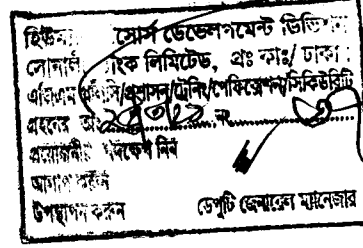 হিউম্যান রিসোর্স ডেভেলপমেন্ট ডিভিশন
সোনালী ব্যাংক লিমিটেড, প্রঃ কাঃ/ ঢাকা।
প্রশাসন/ট্রেনিং/পেনশন/সিকিউরিটি
গ্রহনের
প্রয়োজনীয় পদক্ষেপ নিন
আলাপ করুন
উপস্থাপন করুন ডেপুটি জেনারেল ম্যানেজার